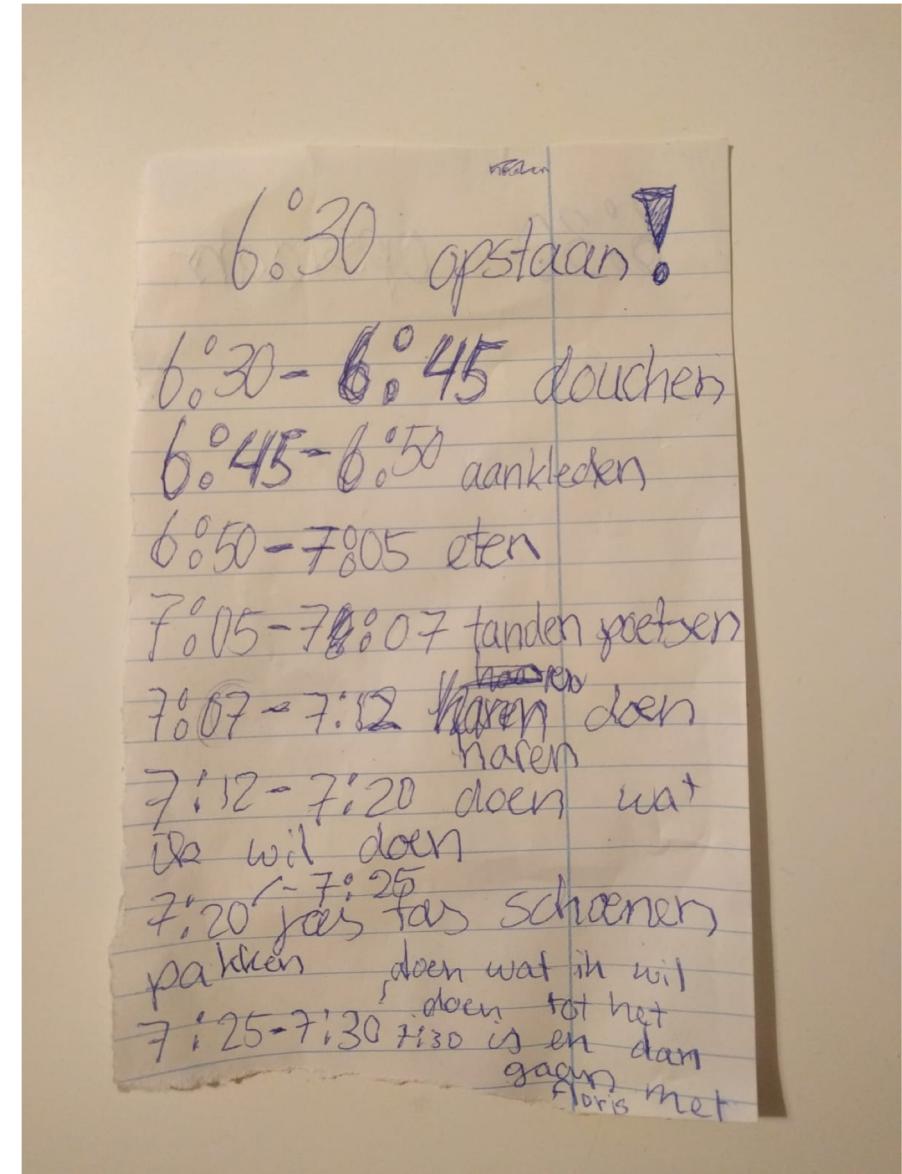 6:30 opstaan!
6:30 - 6:45 douchen
6:45 - 6:50 aankleden
6:50 - 7:05 eten
7:05 - 7:07 tanden poetsen
7:07 - 7:12 haren doen
haren
7:12 - 7:20 doen wat
ik wil doen
7:20 - 7:25 jas tas schoenen
pakken
7:25 - 7:30 doen wat ik wil
doen tot het
7:30 is en dan
gaan met
Floris